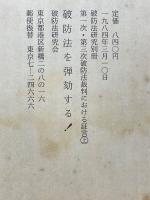 定価 八四〇円
一九八四年三月一〇日
破防法研究別冊
第一次・第三次破防法裁判における証言㊤
破防法を弾劾する!
破防法研究会
東京都港区新橋二の八の一六
郵便振替 東京七―二四六六六